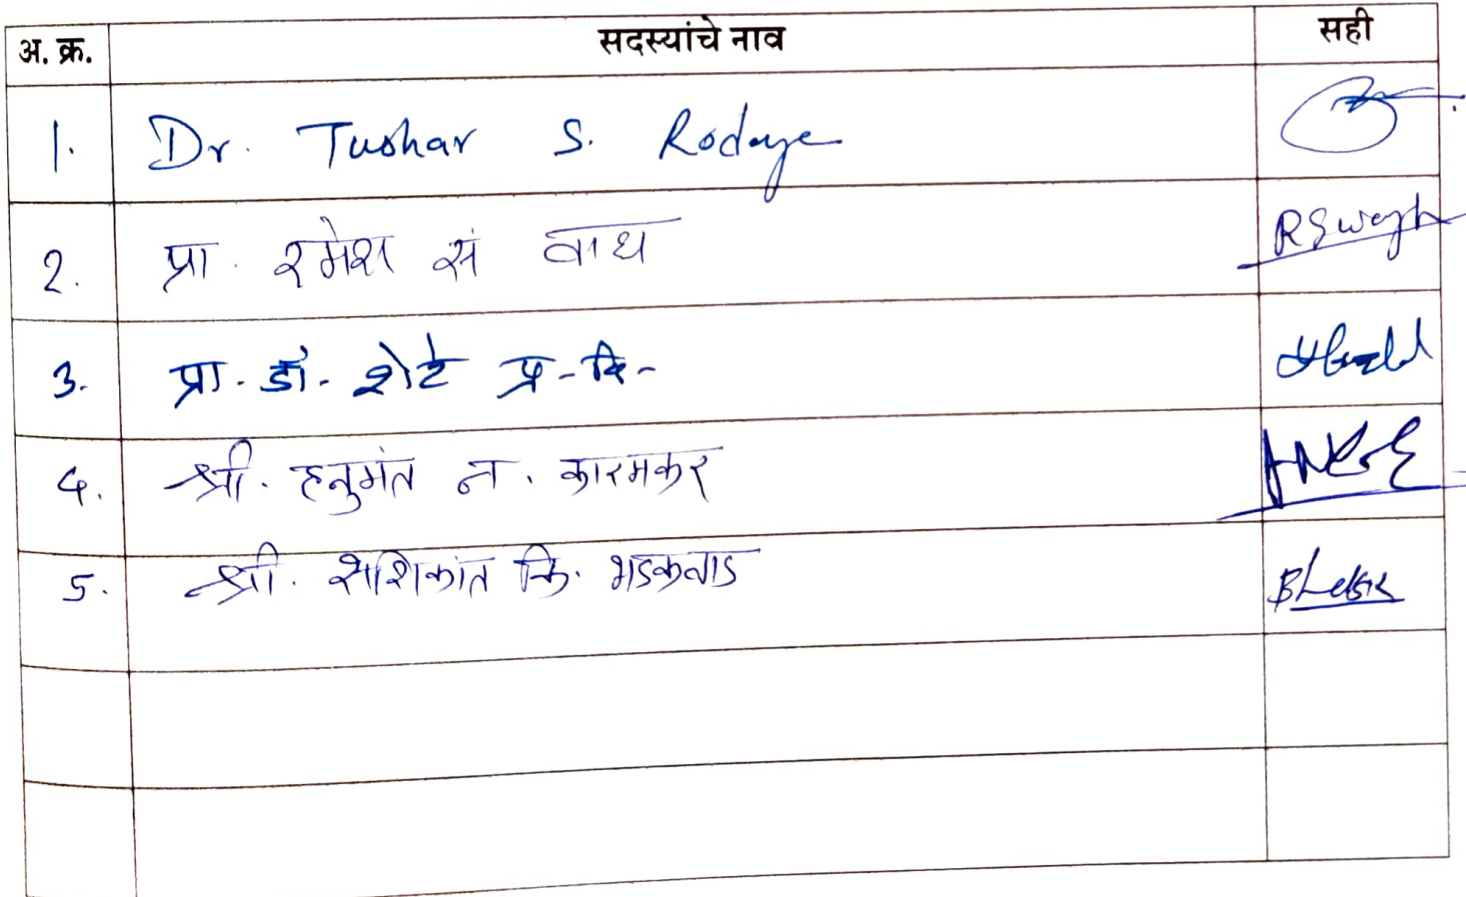 अ. क्र. सदस्यांचे नाव सही
1. Dr. Tushar S. Rodage
2. प्रा. रमेश सं वाघ RSWagh
3. प्रा. डॉ. शेटे प्र. वि.
4. श्री. हनुमंत न. कारमकर
5. श्री. शशिकांत कि. भडकवाड